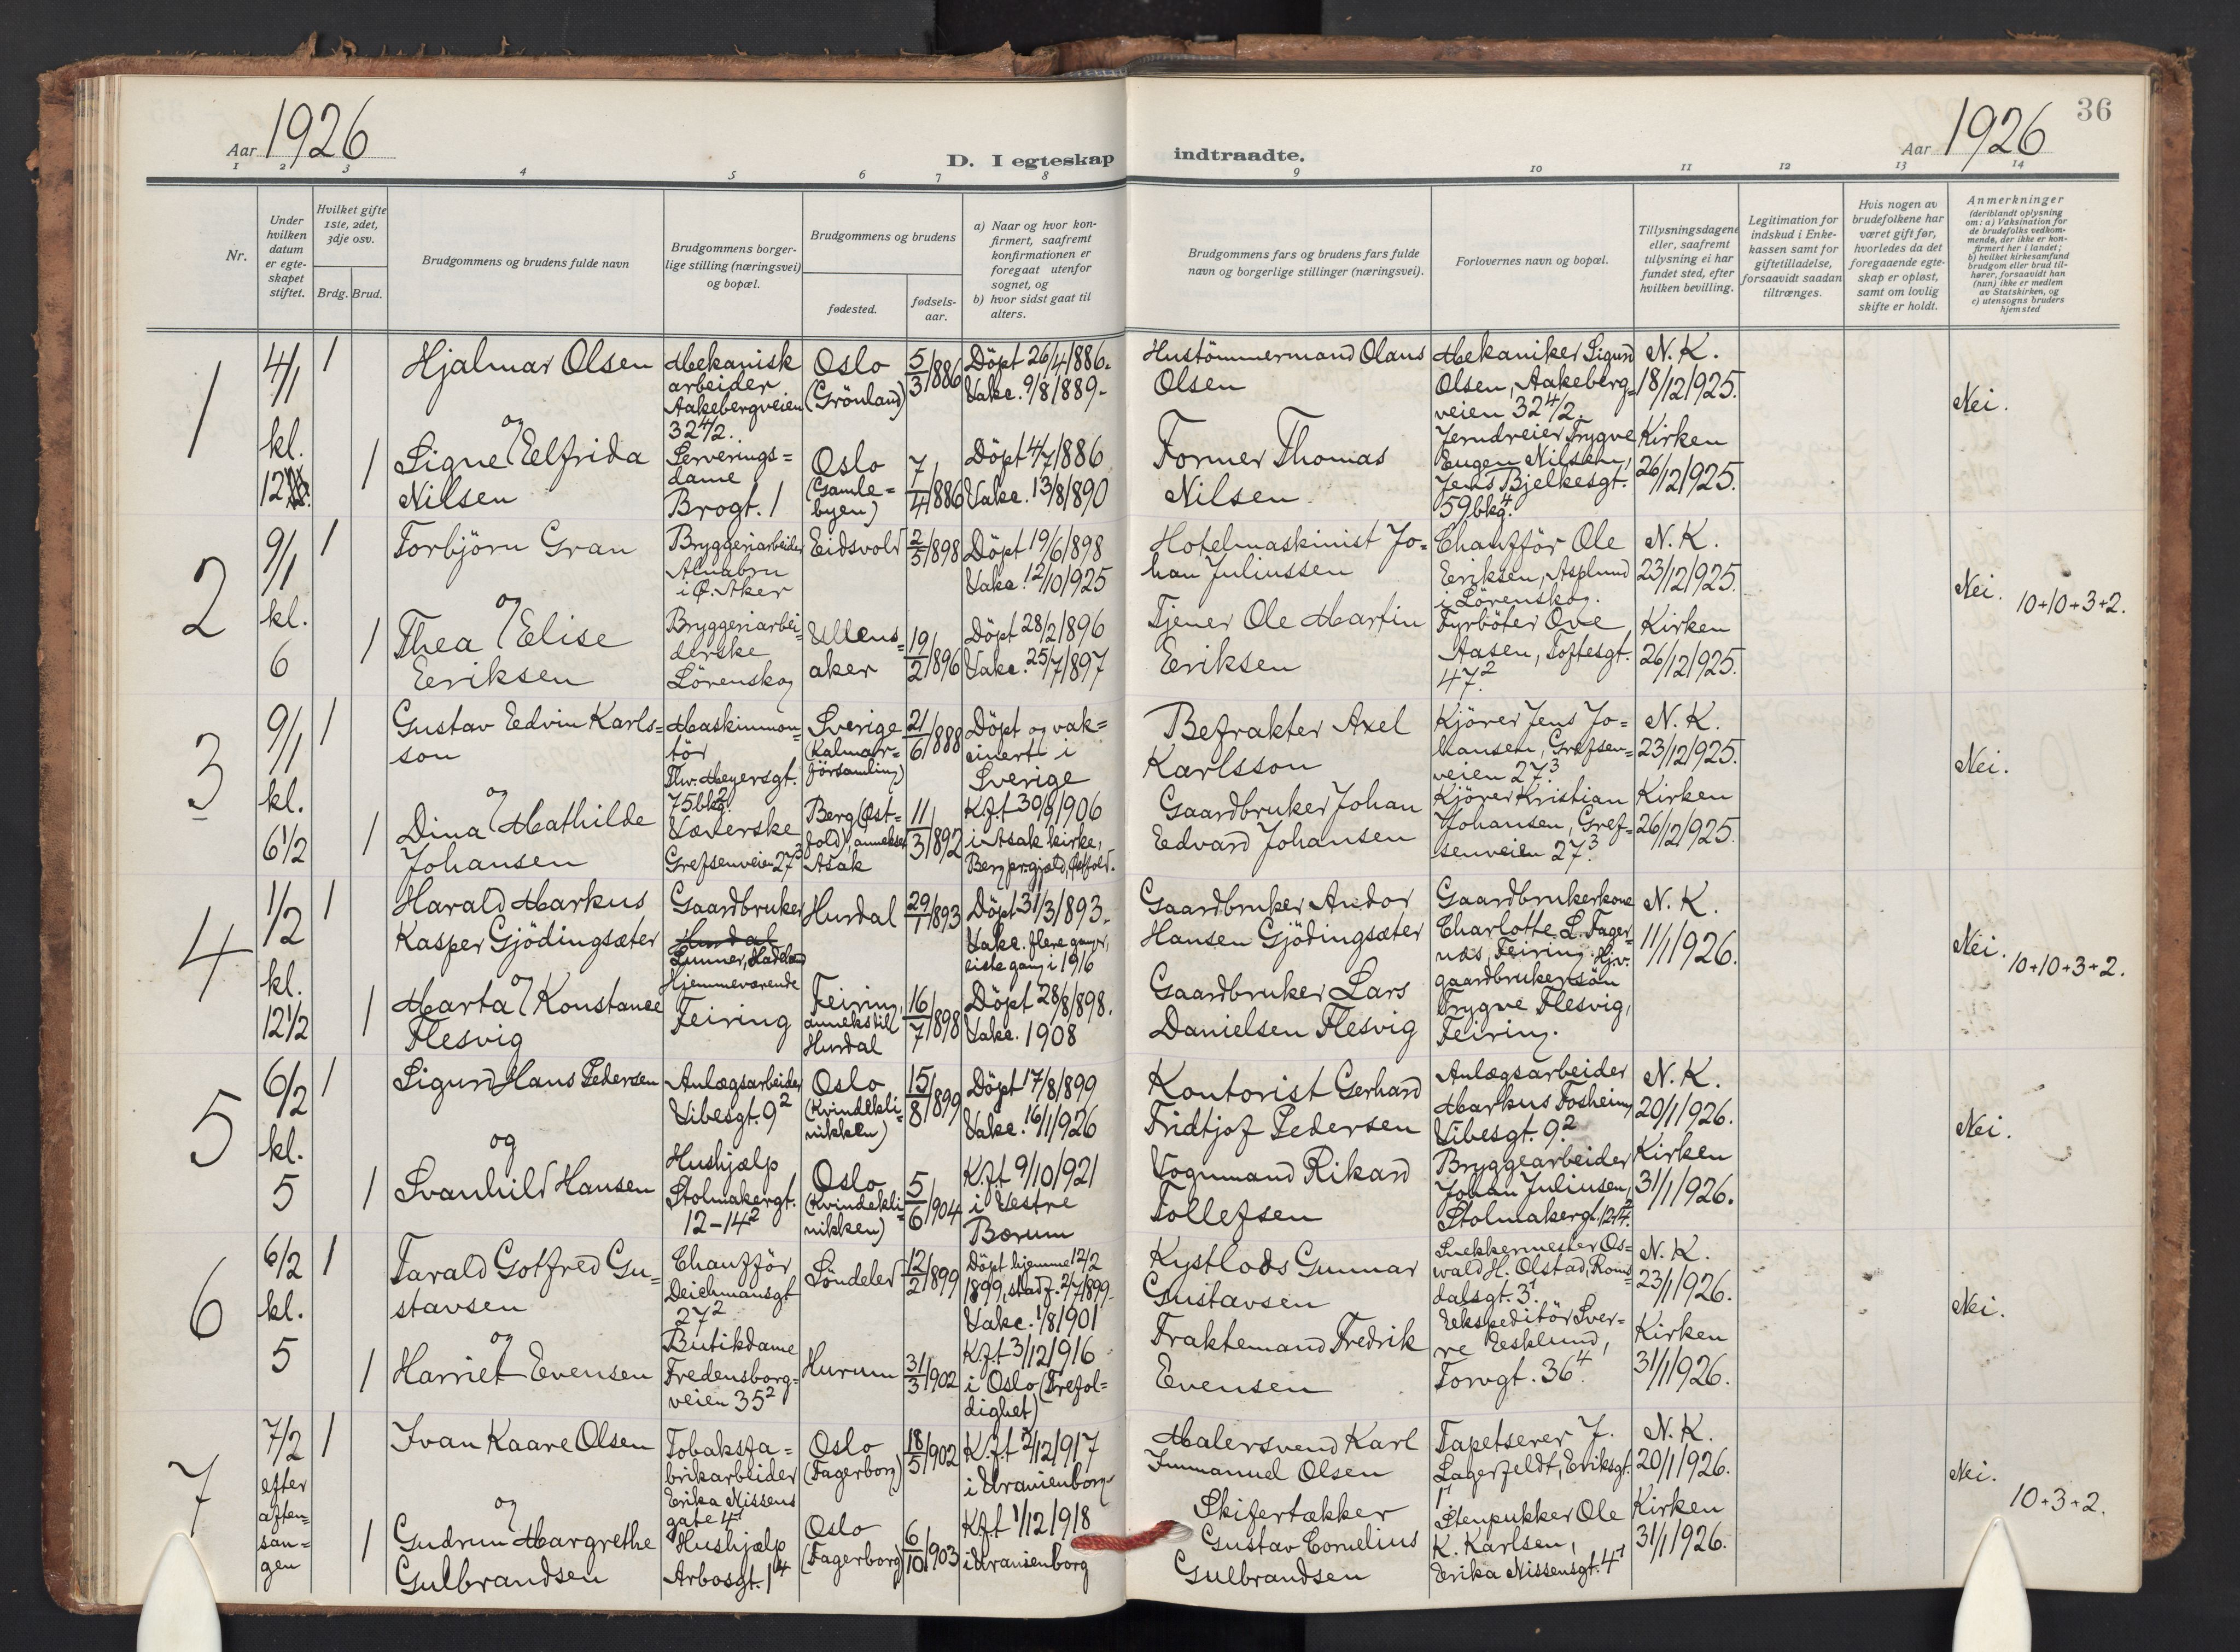 36
Aar 1926
D. I egteskap indtraadte.
Aar 1926
1 2 3 4 5 6 7 8 9 10 11 12 13 14
Nr.
Under hvilken datum er egteskapet stiftet.
Hvilket gifte 1ste, 2det, 3dje osv.
Brdg. Brud.
Brudgommens og brudens fulde navn
Brudgommens borgerlige stilling (næringsvei) og bopæl.
Brudgommens og brudens
fødested.
fødselsaar.
a) Naar og hvor konfirmert, saafremt konfirmationen er foregaat utenfor sognet, og
b) hvor sidst gaat til alters.
Brudgommens fars og brudens fars fulde navn og borgerlige stillinger (næringsvei).
Forlovernes navn og bopæl.
Tillysningsdagene eller, saafremt tillysning ei har fundet sted, efter hvilken bevilling.
Legitimation for indskud i Enkekassen samt for giftetilladelse, forsaavidt saadan tiltrænges.
Hvis nogen av brudefolkene har været gift før, hvorledes da det foregaaende egteskap er opløst, samt om lovlig skifte er holdt.
Anmerkninger
(deriblandt oplysning om: a) Vaksination for de brudefolks vedkommende, der ikke er konfirmert her i landet; b) hvilket kirkesamfund brudgom eller brud tilhører, forsaavidt han (hun) ikke er medlem av Statskirken, og c) utensogns bruders hjemsted
1
4/1 kl. 12
1
Hjalmar Olsen
Mekanisk arbeider Aakebergveien 32 4/2.
Oslo (Grönland)
5/3 1886
Döpt 26/4 1886. Vakc. 9/8 1889.
Hustömmermand Olaus Olsen
Mekaniker Sigurd Olsen, Aakebergveien 32 4/2.
N. K. 18/12 1925.
Nei.
og
1
Signe Elfrida Nilsen
Serveringsdame Brogt. 1
Oslo (Gamlebyen)
7/4 1886
Döpt 4/7 1886 Vakc. 13/8 1890
Former Thomas Nilsen
Jerndreier Trygve Eugen Nilsen, Jens Bjelkesgt. 59 bkg.4
Kirken 26/12 1925.
2
9/1 kl. 6
1
Torbjörn Gran
Bryggeriarbeider Alnabru i Ö. Aker
Eidsvold
2/5 1898
Döpt 19/6 1898 Vakc. 12/10 1925
Hotelmaskinist Johan Juliussen
Chaufför Ole Eriksen, Asplund i Lörenskog.
N. K. 23/12 1925.
Nei. 10+10+3+2.
og
1
Thea Elise Eriksen
Bryggeriarbeiderske Lörenskog
Ullensaker
19/2 1896
Döpt 28/2 1896 Vakc. 25/7 1897
Tjener Ole Martin Eriksen
Fyrböter Ove Aasen, Toftesgt. 47 2.
Kirken 26/12 1925.
3
9/1 kl. 6 1/2
1
Gustav Edvin Karlsson
Maskinmontör Thv. Meyersgt. 75 bkg.2
Sverige (Kalmarförsamling)
21/6 1888
Döpt og vakcinert i Sverige
Befrakter Axel Karlsson
Kjörer Jens Johansen, Grefsenveien 27 3.
N. K. 23/12 1925.
Nei.
og
1
Dina Mathilde Johansen
Væverske Grefsenveien 27 3
Berg (Østfold), annekset Asak
11/3 1892
K.ft 30/9 1906 i Asak kirke, Berg pr.gjæld, Østfold.
Gaardbruker Johan Edvard Johansen
Kjörer Kristian Johansen, Grefsenveien 27 3.
Kirken 26/12 1925.
4
1/2 kl. 12 1/2
1
Harald Markus Kasper Gjödingsæter
Gaardbruker Hurdal Lunner, Hadeland
Hurdal
29/1 1893
Döpt 31/3 1893. Vakc. flere ganger, siste gang i 1916
Gaardbruker Andor Hansen Gjödingsæter
Gaardbrukerkone Charlotte L. Fagernes, Feiring.
N. K. 11/1 1926.
Nei. 10+10+3+2.
og
1
Marta Konstance Flesvig
Hjemmeværende Feiring
Feiring, anneks til Hurdal
16/7 1898
Döpt 28/8 1898. Vakc. 1908
Gaardbruker Lars Danielsen Flesvig
Hjv. gaardbrukersön Trygve Flesvig, Feiring.
5
6/2 kl. 5
1
Sigurd Hans Pedersen
Anlægsarbeider Vibesgt. 9 2
Oslo (Kvindeklinikken)
15/8 1899
Döpt 17/8 1899 Vakc. 16/1 1926
Kontorist Gerhard Fridtjof Pedersen
Anlægsarbeider Markus Fosheim, Vibesgt. 9 2.
N. K. 20/1 1926.
Nei.
og
1
Svanhild Hansen
Hushjælp Stolmakergt. 12-14 2
Oslo (Kvindeklinikken)
5/6 1904
K.ft 9/10 1921 i Vestre Bærum
Vognmand Rikard Tollefsen
Bryggearbeider Johan Juliusen, Stolmakergt. 12-14 2.
Kirken 31/1 1926.
6
6/2 kl. 5
1
Tarald Gotfred Gustavsen
Chaufför Deichmansgt 27 2
Söndeled
12/2 1899
Döpt hjemme 12/2 1899, stadf. 2/7 1899. Vakc. 1/8 1901
Kystlods Gunnar Gustavsen
Snekkermester Oswald H. Olstad, Romsdalsgt. 3 1.
N. K. 23/1 1926.
Nei.
og
1
Harriet Evensen
Butikdame Fredensborgveien 35 2
Hurum
31/3 1902
K.ft 3/12 1916 i Oslo (Trefoldighet)
Fraktemand Fredrik Evensen
Ekspeditör Sverre Esklund, Torvgt. 36 4.
Kirken 31/1 1926.
7
7/2 efter aftensangen
1
Ivan Kaare Olsen
Tobaksfabrikarbeider Erika Nissens gate 4 1
Oslo (Fagerborg)
18/5 1902
K.ft 2/12 1917 i Uranienborg
Malersvend Karl Immanuel Olsen
Tapetserer J. Lagerfeldt, Eriksgt. 1 1.
N. K. 20/1 1926.
Nei. 10+3+2.
og
1
Gudrun Margrethe Gulbrandsen
Hushjælp Arbosgt. 1 4
Oslo (Fagerborg)
6/10 1903
K.ft 1/12 1918 i Uranienborg
Skifertækker Gustav Cornelius Gulbrandsen
Stenpukker Ole K. Karlsen, Erika Nissensgt. 4 1
Kirken 31/1 1926.